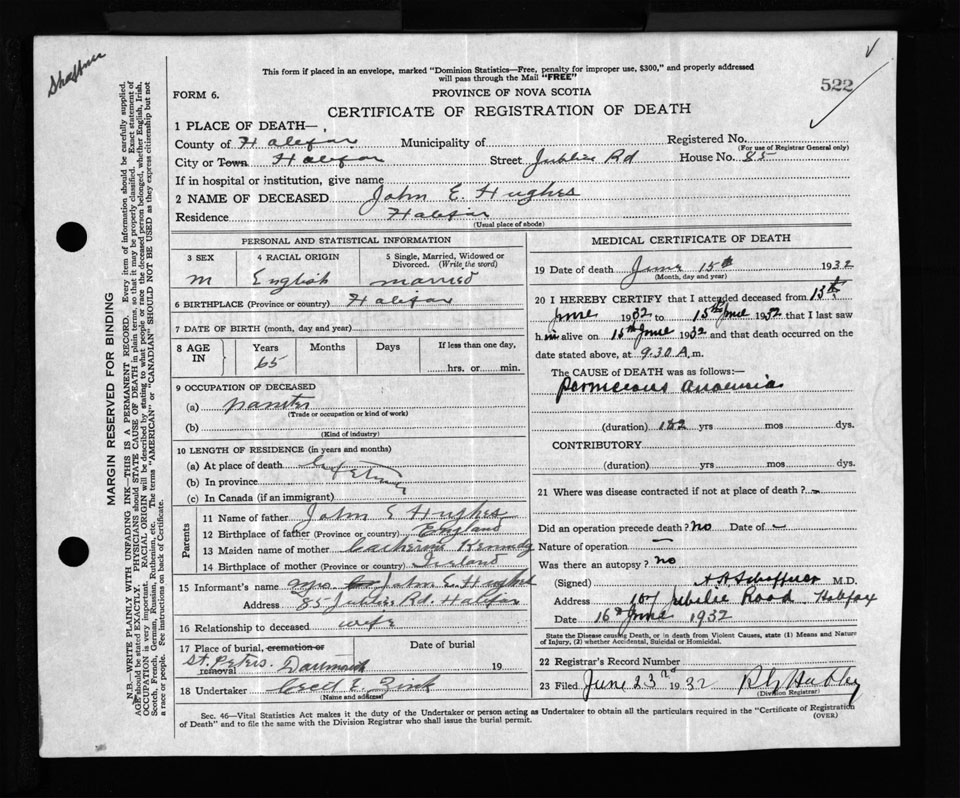 Shaffner
This form if placed in an envelope, marked "Dominion Statistics—Free, penalty for improper use, $300," and properly addressed
will pass through the Mail "FREE"
522
FORM 6.
PROVINCE OF NOVA SCOTIA
CERTIFICATE OF REGISTRATION OF DEATH
1 PLACE OF DEATH—
County of Halifax Municipality of Registered No.
(For use of Registrar General only)
City or Town Halifax Street Jubilee Rd House No. 85
If in hospital or institution, give name
2 NAME OF DECEASED John E. Hughes
Residence Halifax
(Usual place of abode)
PERSONAL AND STATISTICAL INFORMATION
3 SEX 4 RACIAL ORIGIN 5 Single, Married, Widowed or Divorced. (Write the word)
M English married
6 BIRTHPLACE (Province or country) Halifax
7 DATE OF BIRTH (month, day and year)
8 AGE IN Years Months Days If less than one day,
65 hrs. or min.
9 OCCUPATION OF DECEASED
(a) painter
(Trade or occupation or kind of work)
(b)
(Kind of industry)
10 LENGTH OF RESIDENCE (in years and months)
(a) At place of death Lifetime
(b) In province
(c) In Canada (if an immigrant)
Parents
11 Name of father John E Hughes
12 Birthplace of father (Province or country) England
13 Maiden name of mother Catherine Kennedy
14 Birthplace of mother (Province or country) Ireland
15 Informant's name Mrs John E. Hughes
Address 85 Jubilee Rd. Halifax
16 Relationship to deceased wife
17 Place of burial, cremation or removal Date of burial
St. Peters. Dartmouth 19
18 Undertaker Cecil E. Zink
(Name and address)
MEDICAL CERTIFICATE OF DEATH
19 Date of death June 15th 1932
(Month, day and year)
20 I HEREBY CERTIFY that I attended deceased from 13th
June 1932 to 15th June 1932 that I last saw
him alive on 15th June 1932 and that death occurred on the
date stated above, at 9.30 A.m.
The CAUSE of DEATH was as follows:—
Pernicious anaemia
(duration) yrs mos dys.
CONTRIBUTORY
(duration) yrs mos dys.
21 Where was disease contracted if not at place of death? -
Did an operation precede death? No Date of -
Nature of operation -
Was there an autopsy? No
(Signed) Schaffner M.D.
Address 107 Jubilee Road Halifax
Date 16th June 1932
State the Disease causing Death, or in death from Violent Causes, state (1) Means and Nature
of Injury, (2) whether Accidental, Suicidal or Homicidal.
22 Registrar's Record Number
23 Filed June 23rd 1932
(Division Registrar)
Sec. 46—Vital Statistics Act makes it the duty of the Undertaker or person acting as Undertaker to obtain all the particulars required in the "Certificate of Registration
of Death" and to file the same with the Division Registrar who shall issue the burial permit.
(OVER)
MARGIN RESERVED FOR BINDING
N.B.—WRITE PLAINLY WITH UNFADING INK—THIS IS A PERMANENT RECORD. Every item of information should be carefully supplied.
AGE should be stated EXACTLY. PHYSICIANS should STATE CAUSE OF DEATH in plain terms, so that it may be properly classified. Exact statement of
OCCUPATION is very important. RACIAL ORIGIN will be described by stating to what people or race the deceased person belonged, whether English, Irish,
Scotch, French, German, Russian, Ruthenian, etc. The terms "AMERICAN" or "CANADIAN" SHOULD NOT BE USED as they express citizenship but not
a race or people. See instructions on back of Certificate.